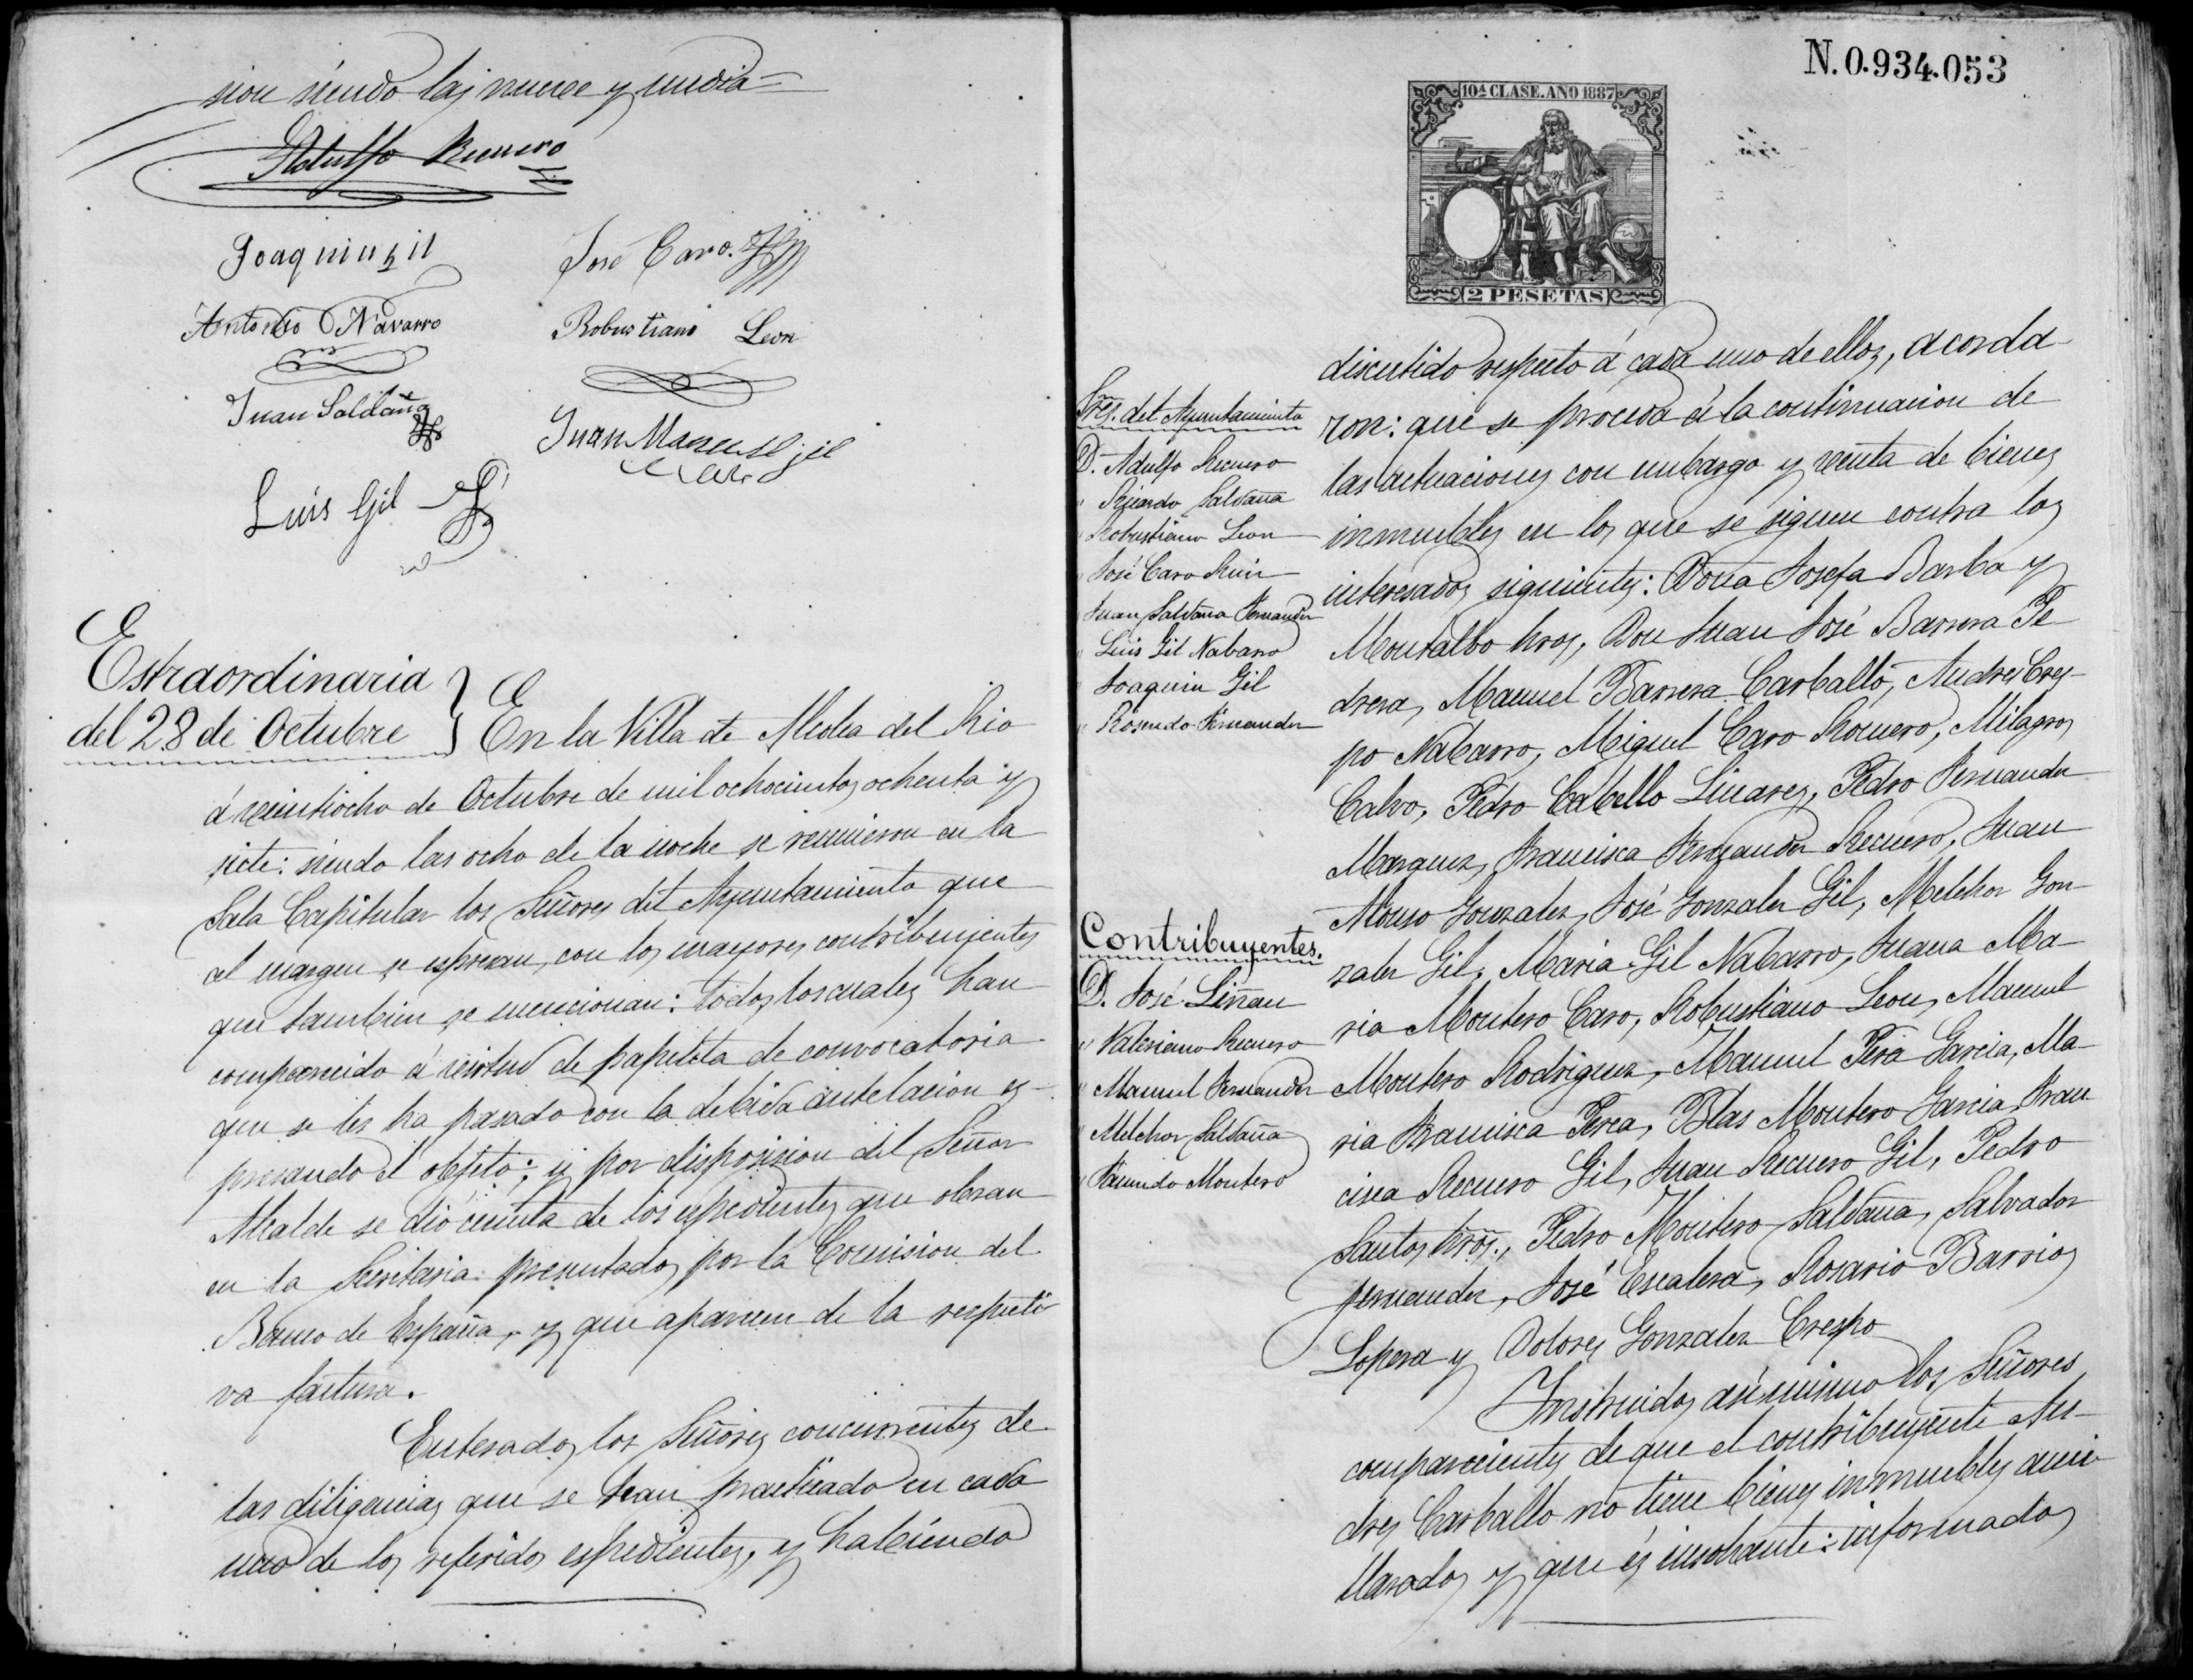 sion siendo las nueve y media=
Adolfo Recuero
Joaquin Gil
José Caro
Antonio Navarro
Robustiano Leon
Juan Saldaña
Juan Manuel Gil
Caro
Luis Gil
Estraordinaria
del 28 de Octubre
En la Villa de Alcolea del Rio
á veintiocho de Octubre de mil ochocientos ochenta y
siete: siendo las ocho de la noche se reunieron en la
Sala Capitular los Señores del Ayuntamiento que
al margen se espresan, con los mayores contribuyentes
que tambien se mencionan: todos los cuales han
comparecido á virtud de papeleta de convocatoria
que se les ha pasado con la debida antelacion es-
presando el objeto; y por disposicion del Señor
Alcalde se dió cuenta de los espedientes que obran
en la Secretaria presentados por la Comision del
Banco de España, y que aparecen de la respecti
va factura.
Enterados los Señores concurrentes de
las diligencias que se han practicado en cada
uno de los referidos espedientes, y habiendo
N.0.934.053
10ª CLASE. AÑO 1887
2 PESETAS
Sres. del Ayuntamiento
D. Adolfo Recuero
" Ricardo Saldaña
" Robustiano Leon
" José Caro Ruiz
" Juan Saldaña Fernandez
" Luis Gil Nabarro
" Joaquin Gil
" Rosendo Fernandez
Contribuyentes.
D. José Liñan
" Valeriano Recuero
" Manuel Fernandez
" Melchor Saldaña
" Facundo Montero
discutido respecto á cada uno de ellos, acorda
ron: que se proceda á la continuacion de
las actuaciones con embargo y venta de bienes
inmuebles en los que se siguen contra los
interesados siguientes: Doña Josefa Barba y
Montalbo hros, Don Juan José Barrera Pe
drera, Manuel Barrera Carballo, Andres Cres-
po Nabarro, Miguel Caro Romero, Milagros
Calvo, Pedro Cabello Linares, Pedro Fernandez
Marquez, Francisca Fernandez Recuero, Juan
Alonso Gonzalez, José Gonzalez Gil, Melchor Gon-
zalez Gil, Maria Gil Nabarro, Juana Ma-
ria Montero Caro, Robustiano Leon, Manuel
Montero Rodriguez, Manuel Pera Garcia, Ma-
ria Francisca Perea, Blas Montero Garcia, Fran
cisca Recuero Gil, Juan Recuero Gil, Pedro
Santos hros., Pedro Montero Saldaña, Salvador
Fernandez, José Escalera, Rosario Barrios
Lopera y Dolores Gonzalez Crespo
Instruidos asimismo los Señores
comparecientes de que el contribuyente An-
dres Carballo no tiene bienes inmuebles ami
llarados y que es insolvente: informados